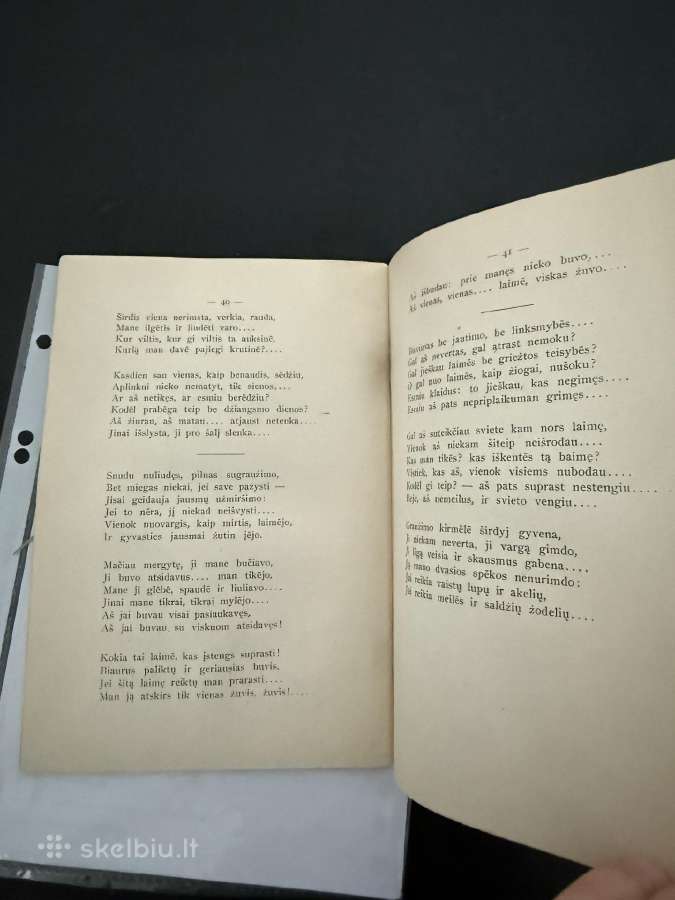 — 40 —
Širdis viena nerimsta, verkia, rauda,
Mane ilgėtis ir liudėti varo....
Kur viltis, kur gi viltis ta auksinė,
Kurią man davė pajiegi krutinė?....
Kasdien sau vienas, kaip benaudis, sėdžiu,
Aplinkui nieko nematyt, tik sienos,...
Ar aš netikęs, ar esmiu berėdžiu?
Kodėl prabėga teip be džiangsmo dienos?
Aš žiuran, aš matau.... atjaust netenka....
Jinai išslysta, ji pro šalį slenka....
Snudu nuliudęs, pilnas sugraužimo,
Bet miegas niekai, jei save pažysti —
Jisai geidauja jausmų užmiršimo:
Jei to nėra, jį niekad neišvysti....
Vienok nuovargis, kaip mirtis, laimėjo,
Ir gyvasties jausmai žutin jėjo.
Mačiau mergytę, ji mane bučiavo,
Ji buvo atsidavus.... man tikėjo,
Mane ji glėbė, spaudė ir liuliavo....
Jinai mane tikrai, tikrai mylėjo....
Aš jai buvau visai pasiaukavęs,
Aš jai buvau su viskuom atsidavęs!
Kokia tai laimė, kas įstengs suprasti!
Biaurus paliktų ir geriausias buvis.
Jei šitą laimę reiktų man prarasti....
Man ją atskirs tik vienas žuvis, žuvis!....
— 41 —
Aš išbudau: prie manęs nieko buvo,...
Aš vienas, vienas.... laimė, viskas žuvo....
be jautimo, be linksmybės....
Gal aš nevertas, gal ątrast nemoku?
Gal jieškau laimės be griežtos teisybės?
O gal nuo laimės, kaip žiogai, nušoku?
Esmiu klaidus: to jieškau, kas negimęs....
Esmiu aš pats nepriplaikuman grimęs....
Gal aš suteikčiau sviete kam nors laimę,
Vienok aš niekam šiteip neišrodau....
Kas man tikės? kas iškentės tą baimę?
Vistiek, kas aš, vienok visiems nubodau....
Kodėl gi teip? — aš pats suprast nestengiu....
Beje, aš nemeilus, ir svieto vengiu....
Graužimo kirmėlė širdyj gyvena,
Ji niekam neverta, ji vargą gimdo,
Ji ligą veisia ir skausmus gabena....
Ją mano dvasios spėkos nenurimdo:
Jai reikia vaistų lupų ir akelių,
Jai reikia meilės ir saldžių žodelių....
skelbiu.lt